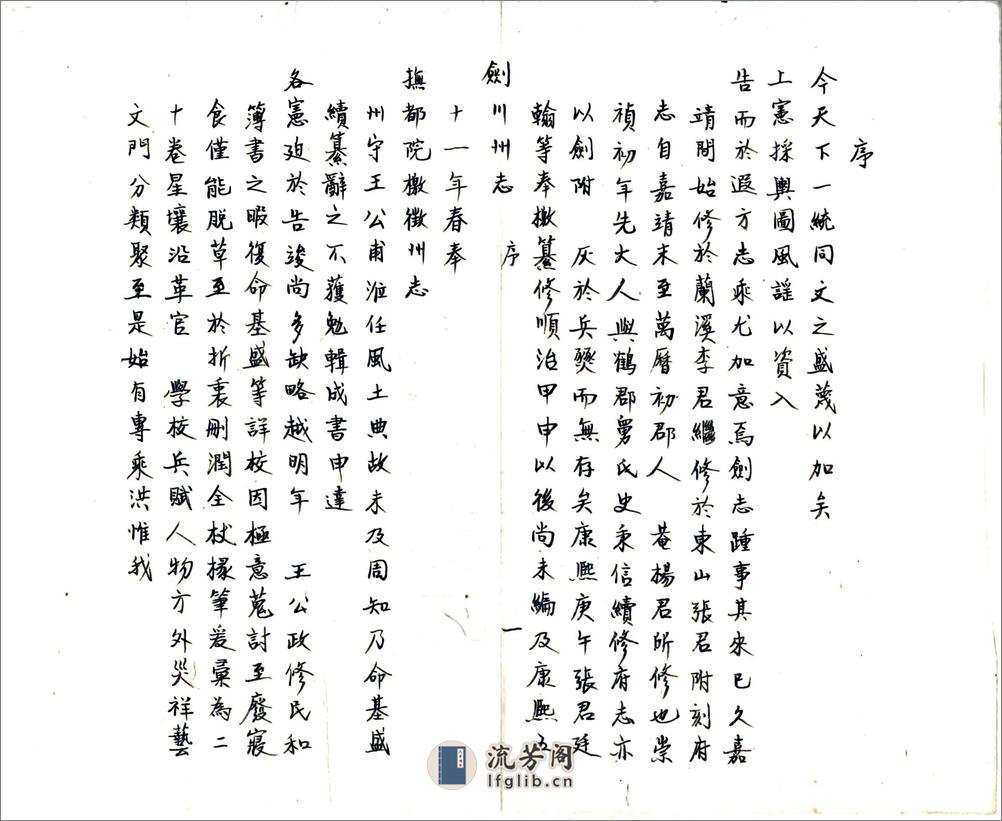 序
今天下一統同文之盛蔑以加矣
上憲採輿圖風謡以資入
告而於遐方志乘尤加意焉劍志踵事其來已久嘉
靖間始修於蘭溪李君繼修於東山張君附刻府
志自嘉靖末至萬曆初郡人 菴楊君所修也崇
禎初年先大人與鶴郡舅氏史秉信續修府志亦
以劍附 灰於兵燹而無存矣康熙庚午張君廷
翰等奉檄纂修順治甲申以後尚未編及康熙五
劍川州志 序 一
十一年春奉
撫都院檄徵州志
州守王公甫涖任風土典故未及周知乃命基盛
續纂辭之不獲勉輯成書申達
各憲迫於告竣尚多缺略越明年 王公政修民和
簿書之暇復命基盛等詳校因極意蒐討至廢寢
食僅能脱草至於折衷刪潤全杖椽筆爰彙為二
十卷星壤沿革官 學校兵賦人物方外災祥藝
文門分類聚至是始有專乘洪惟我
流芳阁
lfglib.cn